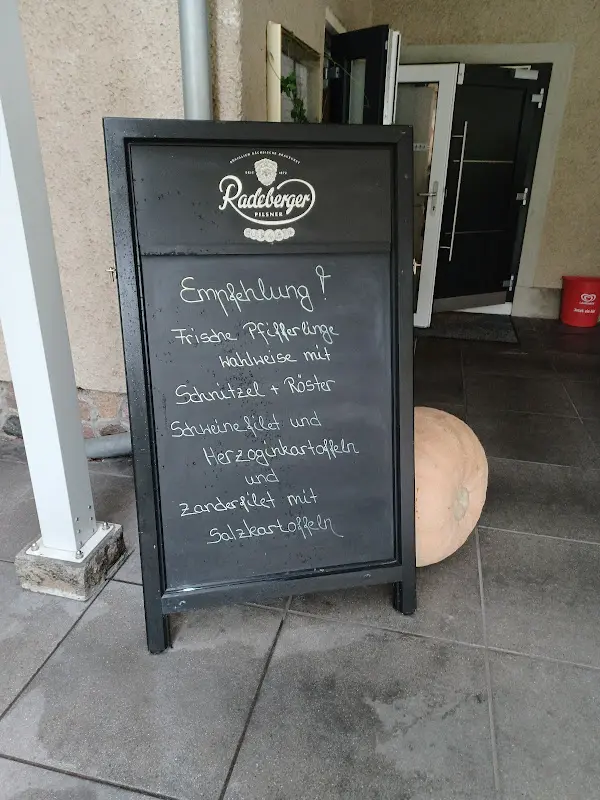 Radeberger
PILSNER
Empfehlung!
Frische Pfifferlinge
wahlweise mit
Schnitzel + Röster
Schweinefilet und
Herzoginkartoffeln
und
Zanderfilet mit
Salzkartoffeln